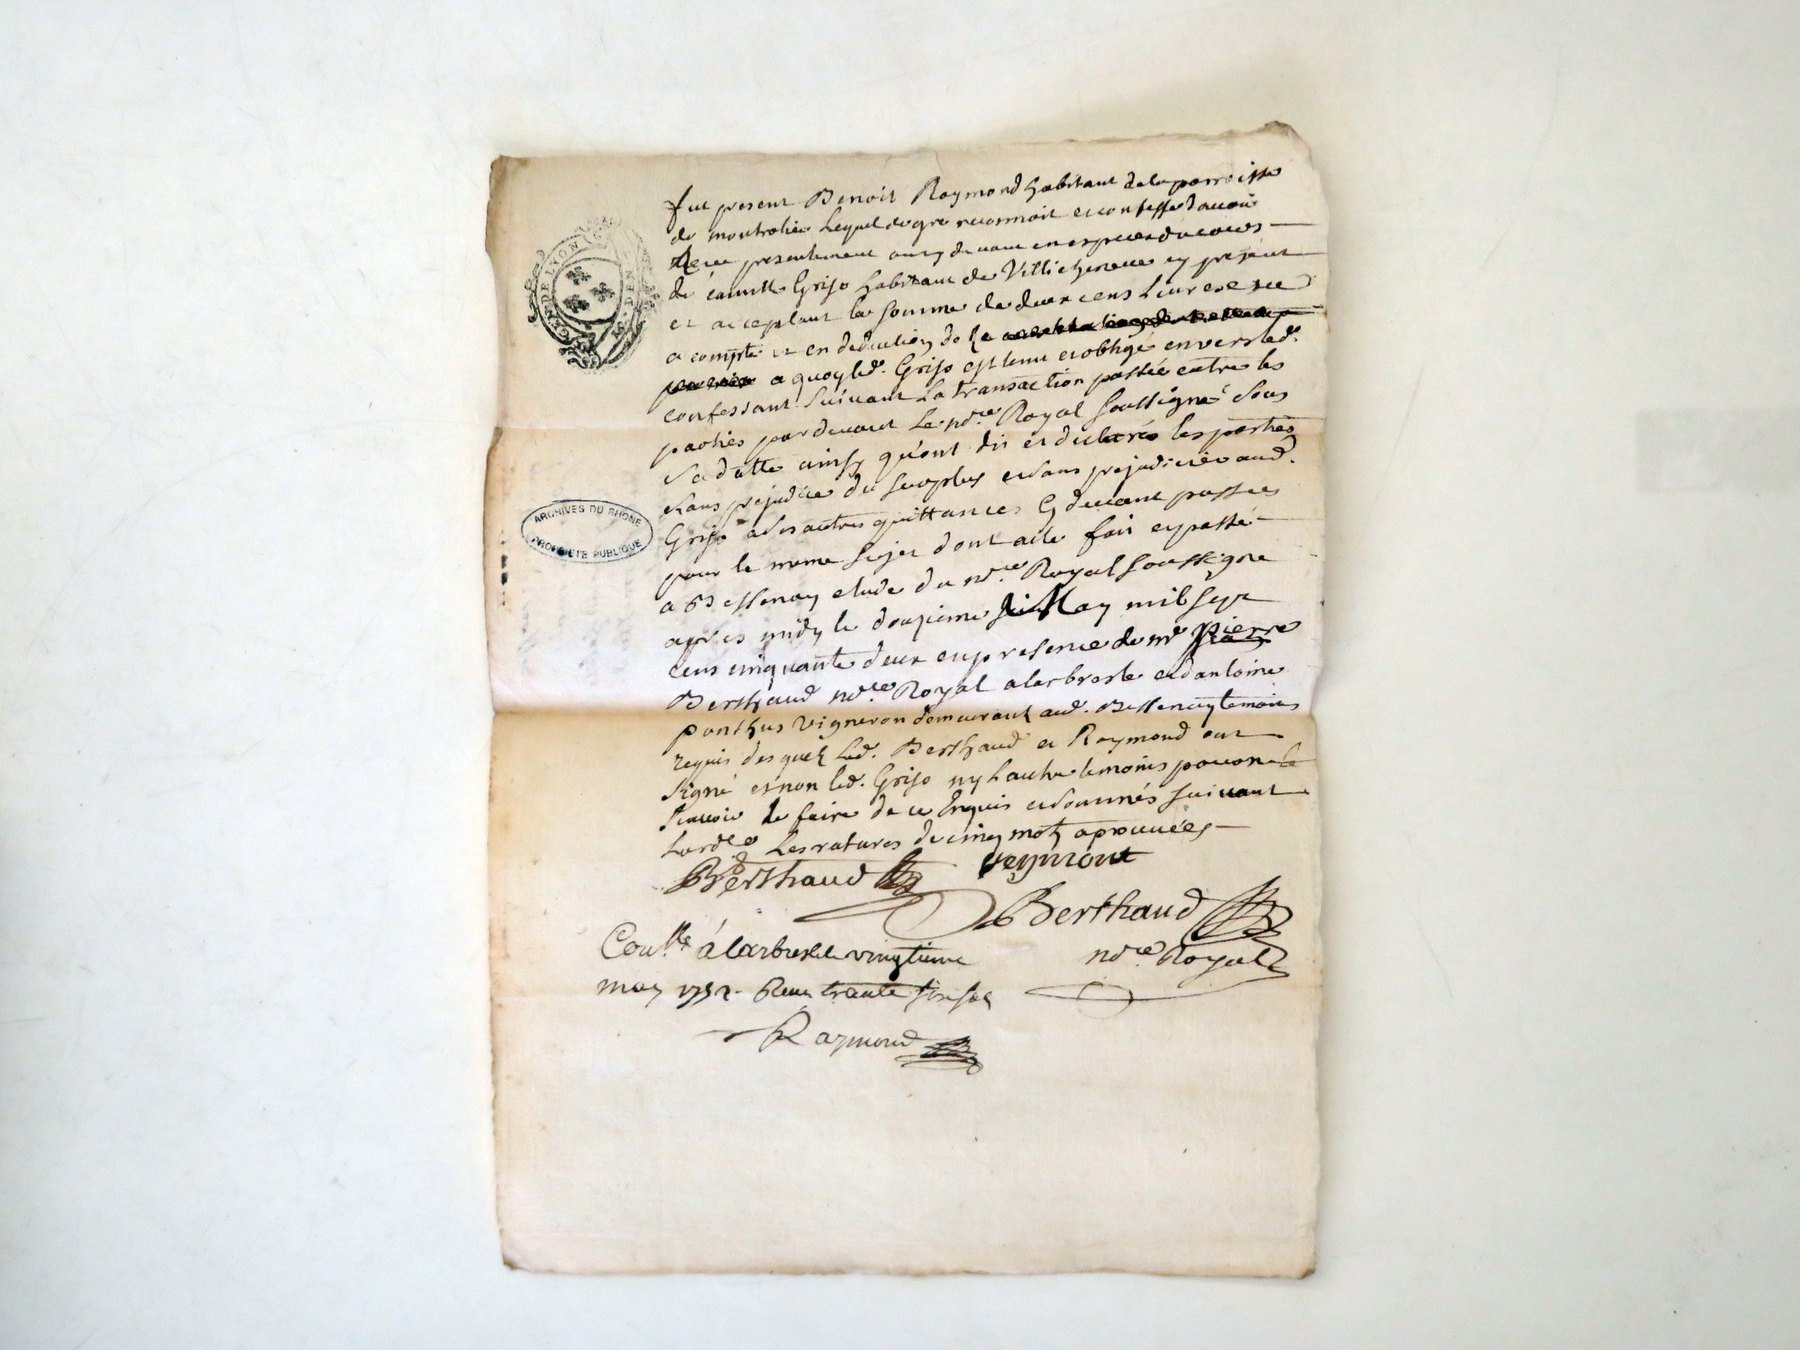 GEN. DE LYON
DEN.
ARCHIVES DU RHONE
PROPRIÉTÉ PUBLIQUE
fut present Benoit Raymond habitant de la parroisse
de montrotier Lequel de gre reconnoit et confesse d'avoir
Receu presentement au cy devant en especes du cours
de Griso habitant de Villecheneve cy présent
et acceptant la somme de deux cens Livres et ce
a compte et en deduction de
a quoy led. Griso est tenu et obligé envers led.
confessant suivant La transaction passée entre les
parties pardevant Le nore. Royal soussigné Sous
Sa datte ainsy qu'ont dit et declarés les parties
sans prejudice du surplus et sans prejudicier aud.
Griso a des autres quittances Cy devant passées
pour le meme sujet dont acte fait et passé
a Bessenay etude du nore. Royal soussigné
apres midy le douzieme May mil sept
cens cinquante deux en presence de me Pierre
Berthaud nore. Royal a larbresle et d'antoine
ponthus vigneron demeurant aud. Bessenay temoins
requis desquels Led. Berthaud et Raymond ont
signé et non led. Griso ny Lautre temoins pour ne
scavoir le faire de ce Enquis et sommés suivant
Lord.ce Les ratures de cinq mots aprouvées
Berthaud reymont
Berthaud
nore. Royal
Con.lle á larbresle le vingtieme
may 1752. Receu trente six sols
Raymond